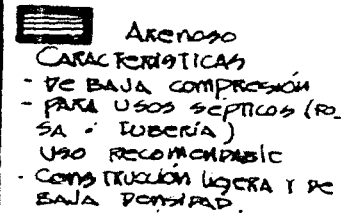 Arenoso
CARACTERÍSTICAS
- DE BAJA COMPRESIÓN
- PARA USOS SÉPTICOS (FO_
SA : TUBERÍA)
USO RECOMENDABLE
- CONSTRUCCIÓN LIGERA Y DE
BAJA DENSIDAD.